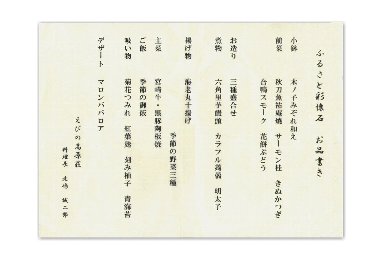 ふるさと彩懐石　お品書き
小鉢　木ノ子みぞれ和え
前菜　秋刀魚祐庵焼　サーモン桂　きぬかつぎ
合鴨スモーク　花餅ぶどう
お造り　三種盛合せ
煮物　六角里芋饅頭　カラフル蒟蒻　明太子
揚げ物　海老丸十揚げ
季節の野菜三種
主菜　宮崎牛・黒豚陶板焼
ご飯　季節の御飯
吸い物　菊花つみれ　紅葉麩　刻み柚子　青海苔
デザート　マロンババロア
えびの高原荘
料理長　　誠二郎